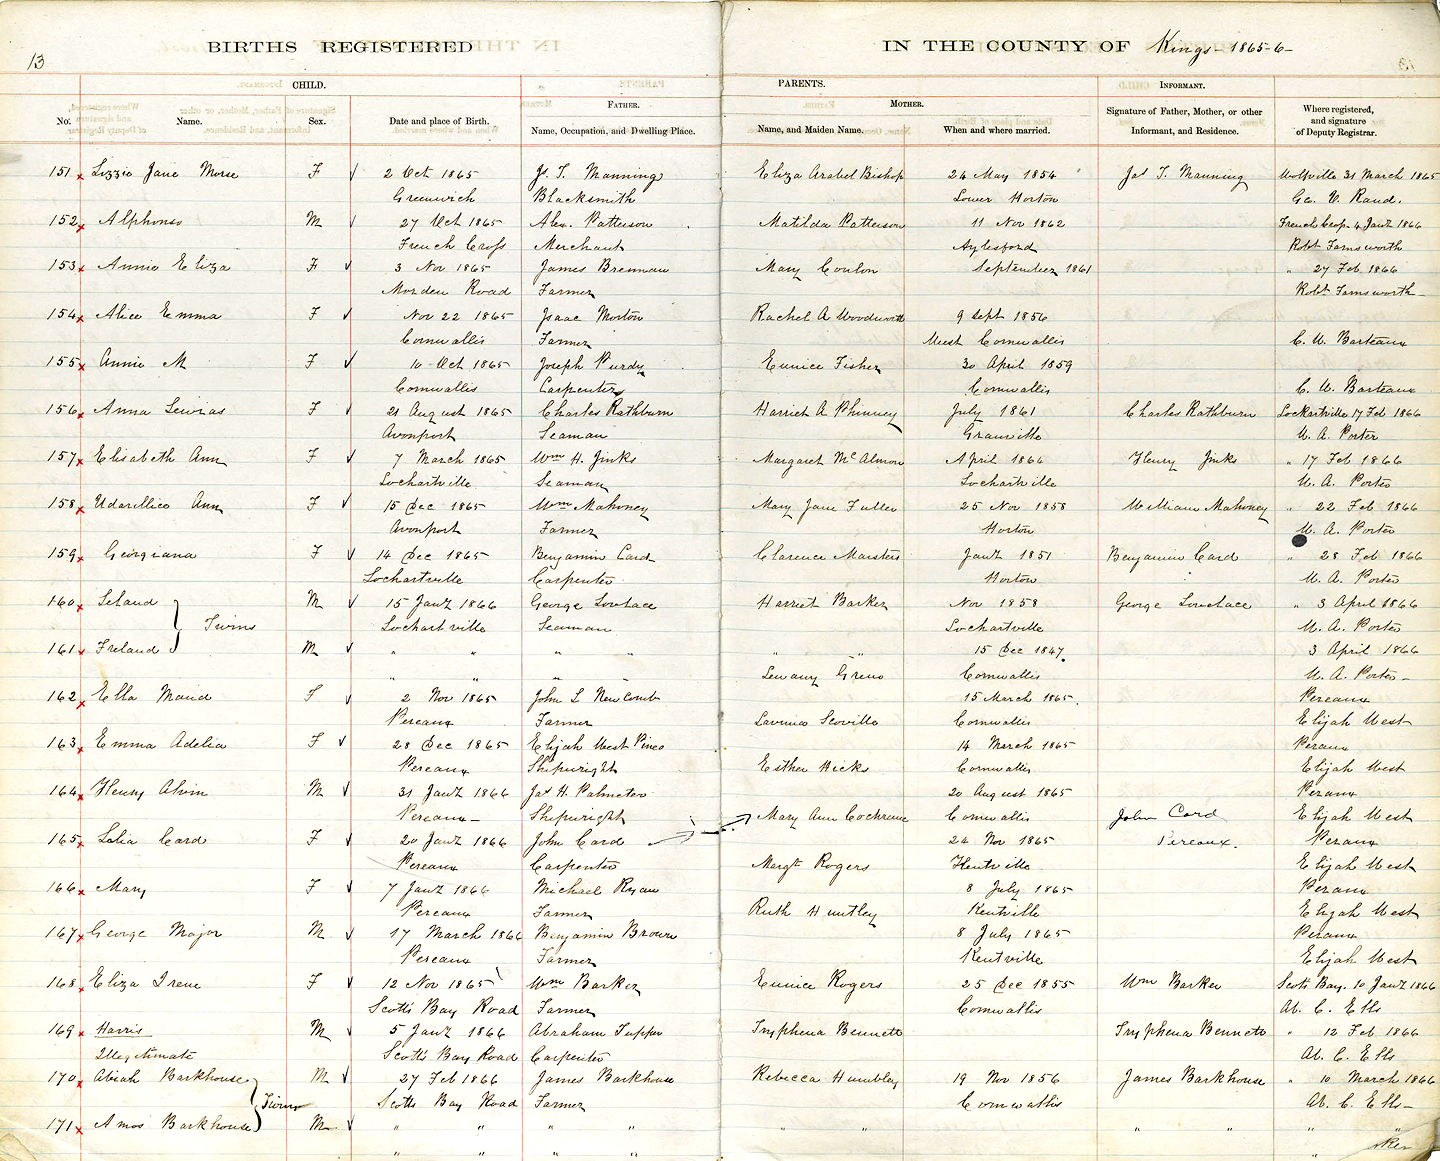 13
BIRTHS REGISTERED IN THE COUNTY OF Kings 1865-6-
CHILD. PARENTS. INFORMANT.
FATHER. MOTHER.
No. Name. Sex. Date and place of Birth. Name, Occupation, and Dwelling Place. Name, and Maiden Name. When and where married. Signature of Father, Mother, or other Informant, and Residence. Where registered, and signature of Deputy Registrar.
151 Lizzie Jane Morse F 2 Oct 1865 Js. T. Manning Eliza Arabel Bishop 24 May 1854 Jas T. Manning Wolfville 31 March 1865
Greenwich Blacksmith Lower Horton Geo. V. Rand.
152 Alphonso M 27 Oct 1865 Alex. Patterson Matilda Patterson 11 Nov 1862 French Cross 4 Jany 1866
French Cross Merchant Aylesford Robt Farnsworth
153 Annie Eliza F 3 Nov 1865 James Brennan Mary Conlon September 1861 " 27 Feb 1866
Morden Road Farmer Robt Farnsworth
154 Alice Emma F Nov 22 1865 Isaac Morton Rachel A Woodworth 9 Sept 1856
Cornwallis Farmer West Cornwallis C. W. Barteaux
155 Annie M F 10 Oct 1865 Joseph Purdy Eunice Fisher 30 April 1859
Cornwallis Carpenter Cornwallis C. W. Barteaux
156 Anna F 21 August 1865 Charles Rathburn Harriet A Phinney July 1861 Charles Rathburn Lockartville 17 Feb 1866
Avonport Seaman Granville W. A. Porter
157 Elisabeth Ann F 7 March 1865 Wm H. Jinks Margaret McAlmon April 1864 Henry Jinks " 17 Feb 1866
Lochartville Seaman Lochartville W. A. Porter
158 Ann F 15 Dec 1865 Wm Mahoney Mary Jane Fuller 25 Nov 1858 William Mahoney " 22 Feb 1866
Avonport Farmer Horton W. A. Porter
159 Georgiana F 14 Dec 1865 Benjamin Card Clarence Marsters Jany 1851 Benjamin Card " 28 Feb 1866
Lochartville Carpenter Horton W. A. Porter
160 Leland M 15 Jany 1866 George Lovelace Harriet Barker Nov 1858 George Lovelace " 3 April 1866
Twins Lochartville Seaman Lochartville W. A. Porter
161 Freland M " " " " " " 15 Dec 1847 3 April 1866
" " " Greno Cornwallis W. A. Porter
162 Ella Maud F 2 Nov 1865 John L Newcomb 15 March 1865 Pereaux
Pereaux Farmer Lavinia Scoville Cornwallis Elijah West
163 Emma Adelia F 28 Dec 1865 Elijah West Pineo 14 March 1865 Peraux
Pereaux Shipwright Esther Hicks Cornwallis Elijah West
164 Henry Alvin M 31 Jany 1866 Jas H. Palmeter 20 August 1865 Peraux
Pereaux Shipwright Mary Ann Cochrane Cornwallis John Card Elijah West
165 Lalia Card F 20 Jany 1866 John Card 24 Nov 1865 Pereaux. Peraux
Pereaux Carpenter Margt Rogers Kentville Elijah West
166 Mary F 7 Jany 1866 Michael Ryan 8 July 1865 Peraux
Pereaux Farmer Ruth Huntley Kentville Elijah West
167 George Major M 17 March 1866 Benjamin Brown 8 July 1865 Peraux
Pereaux Farmer Kentville Elijah West
168 Eliza Irene F 12 Nov 1865 Wm Barker Eunice Rogers 25 Dec 1855 Wm Barker Scots Bay. 10 Jany 1866
Scott's Bay Road Farmer Cornwallis Ab. C. Ells
169 Harris M 5 Jany 1866 Abraham Tupper Tryphena Bennett Tryphena Bennett " 12 Feb 1866
Illegitimate Scott's Bay Road Carpenter Ab. C. Ells
170 Abiah Barkhouse M 27 Feb 1866 James Barkhouse Rebecca Humbley 19 Nov 1856 James Barkhouse " 10 March 1866
Twins Scotts Bay Road Farmer Cornwallis Ab. C. Ells
171 Amos Barkhouse M " " " " " " " " " "
" " " "